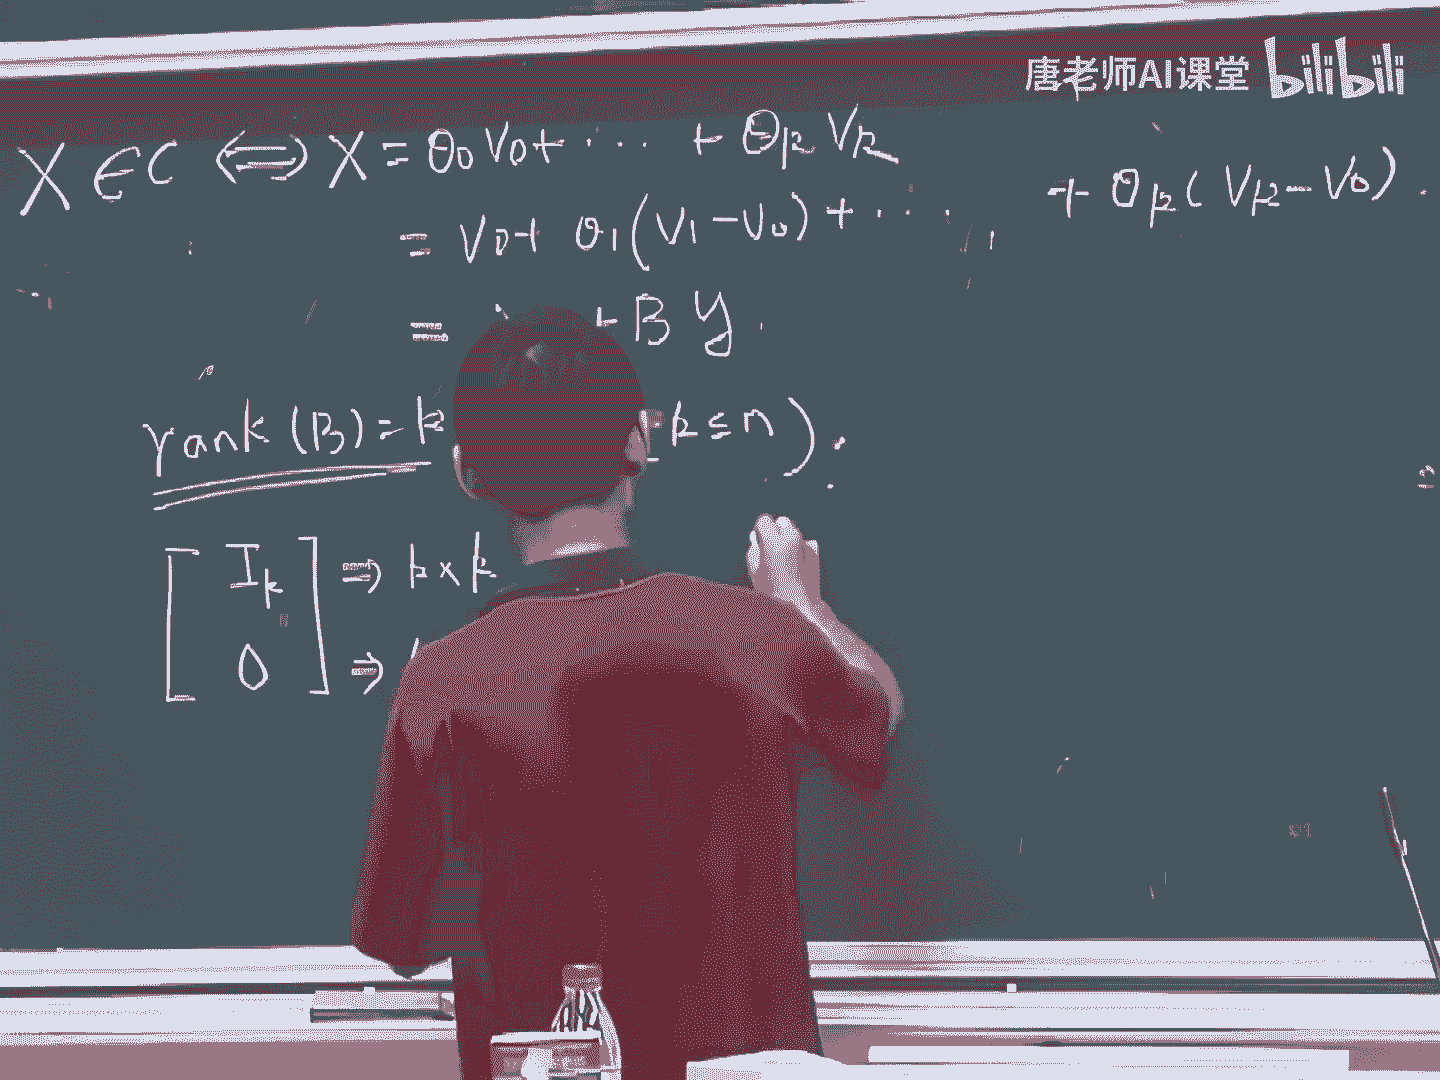 唐老师AI课堂 bilibili
X ∈ C ⟺ X = θ0 V0 + ··· + θk Vk
= V0 + θ1 (V1 − V0) + ··· + θk ( Vk − V0) .
= + B y .
rank (B) = k k ≤ n ) .
[ Ik ] ⇒ k × k
[ 0 ] ⇒